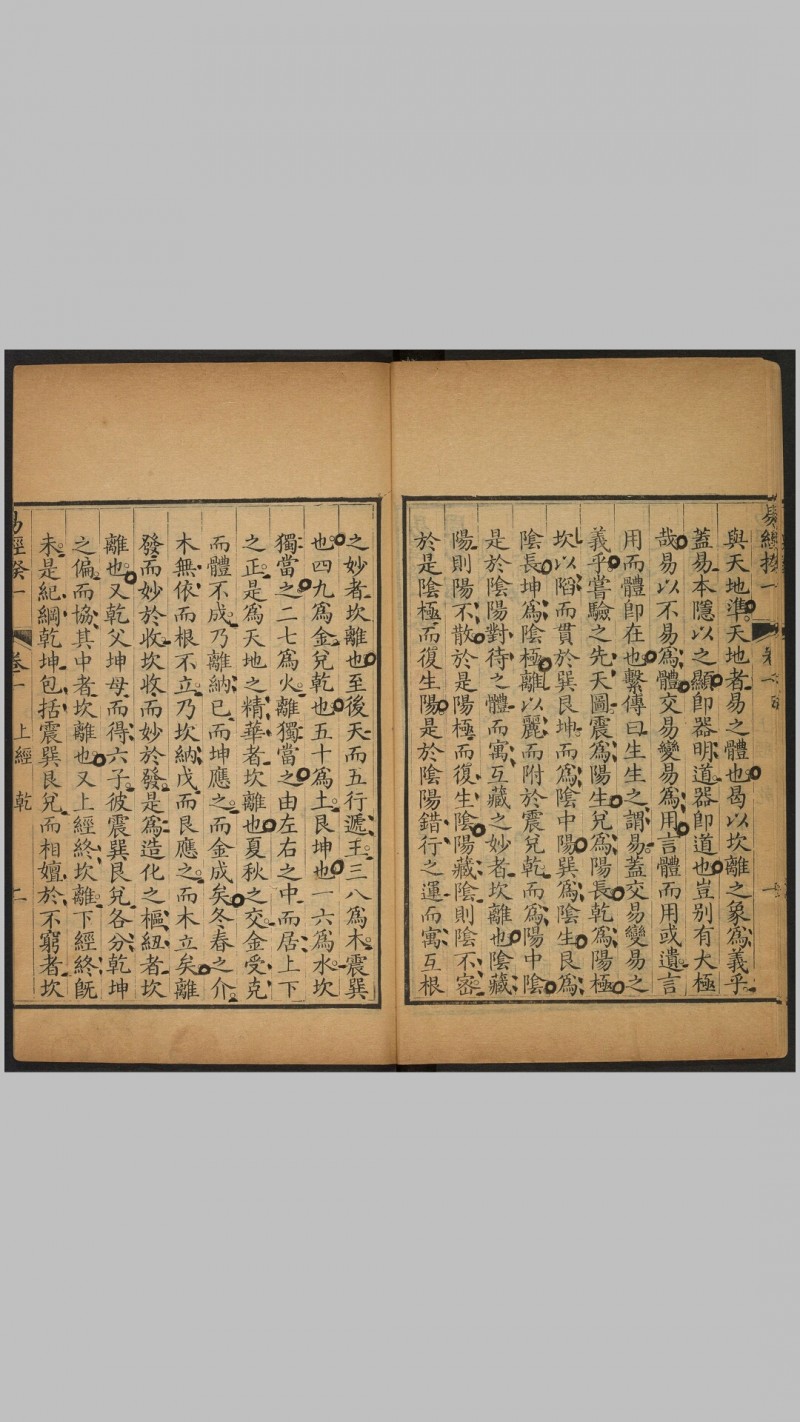 與天地準天地者易之體也曷以坎離之象爲義乎
蓋易本隱以之顯卽器明道器卽道也豈别有太極
哉易以不易爲體交易變易爲用言體而用或遺言
用而體卽在也繫傳曰生生之謂易蓋交易變易之
義乎嘗驗之先天圖震爲陽生兌爲陽長乾爲陽極
坎以陷而貫於巽艮坤而爲陰中陽巽爲陰生艮爲
陰長坤爲陰極離以麗而附於震兌乾而爲陽中陰
是於陰陽對待之體而寓互藏之妙者坎離也陰藏
陽則陽不散於是陽極而復生陰陽藏陰則陰不密
於是陰極而復生陽是於陰陽錯行之運而寓互根
之妙者坎離也至後天而五行遞王三八爲木震巽
也四九爲金兌乾也五十爲土艮坤也一六爲水坎
獨當之二七爲火離獨當之由左右之中而居上下
之正是爲天地之精華者坎離也夏秋之交金受克
而體不成乃離納已而坤應之而金成矣冬春之介
木無依而根不立乃坎納戊而艮應之而木立矣離
發而妙於收坎收而妙於發是爲造化之樞紐者坎
離也又乾父坤母而得六子彼震巽艮兌各分乾坤
之偏而協其中者坎離也又上經終坎離下經終旣
未是紀綱乾坤包括震巽艮兌而相嬗於不窮者坎
卷一 上經 乾 二